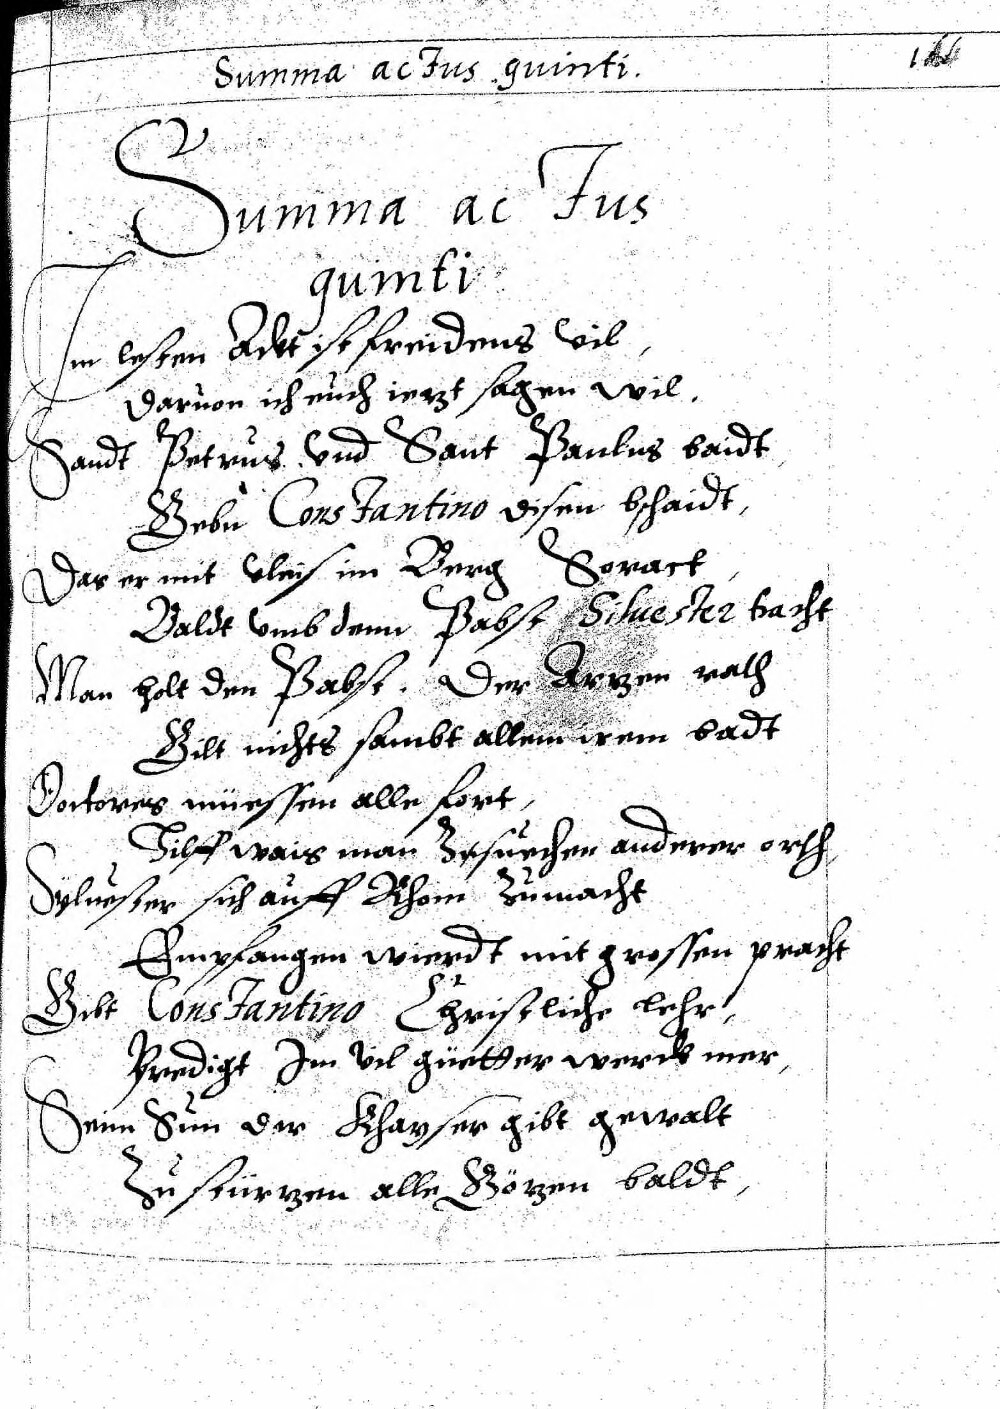 Summa actus quinti.
Summa actus
quinti
Im lesten Act ist freidens vil,
Daruon ich euch ietzt sagen wil.
Sandt Petrus vnd Sant Paulus baidt
Gebn Constantino disen bschaidt,
Das er mit vleis im Berg Soract,
Baldt vmb denn Pabst Siluester tracht
Man holt den Pabst. Der Artzen rath
Gilt nichts sambt allem irem badt
Doctores müessen alle fort,
Hilff wais man Zesuechen anderer orth,
Syluester sich auff Rhom Zumacht
Empfangen wierdt mit grossen pracht
Gibt Constantino Christliche lehr,
Predigt Im vil güetter werck mer,
Seim Sun der Khayser gibt gewalt
Zu stürtzen alle Götzen baldt,